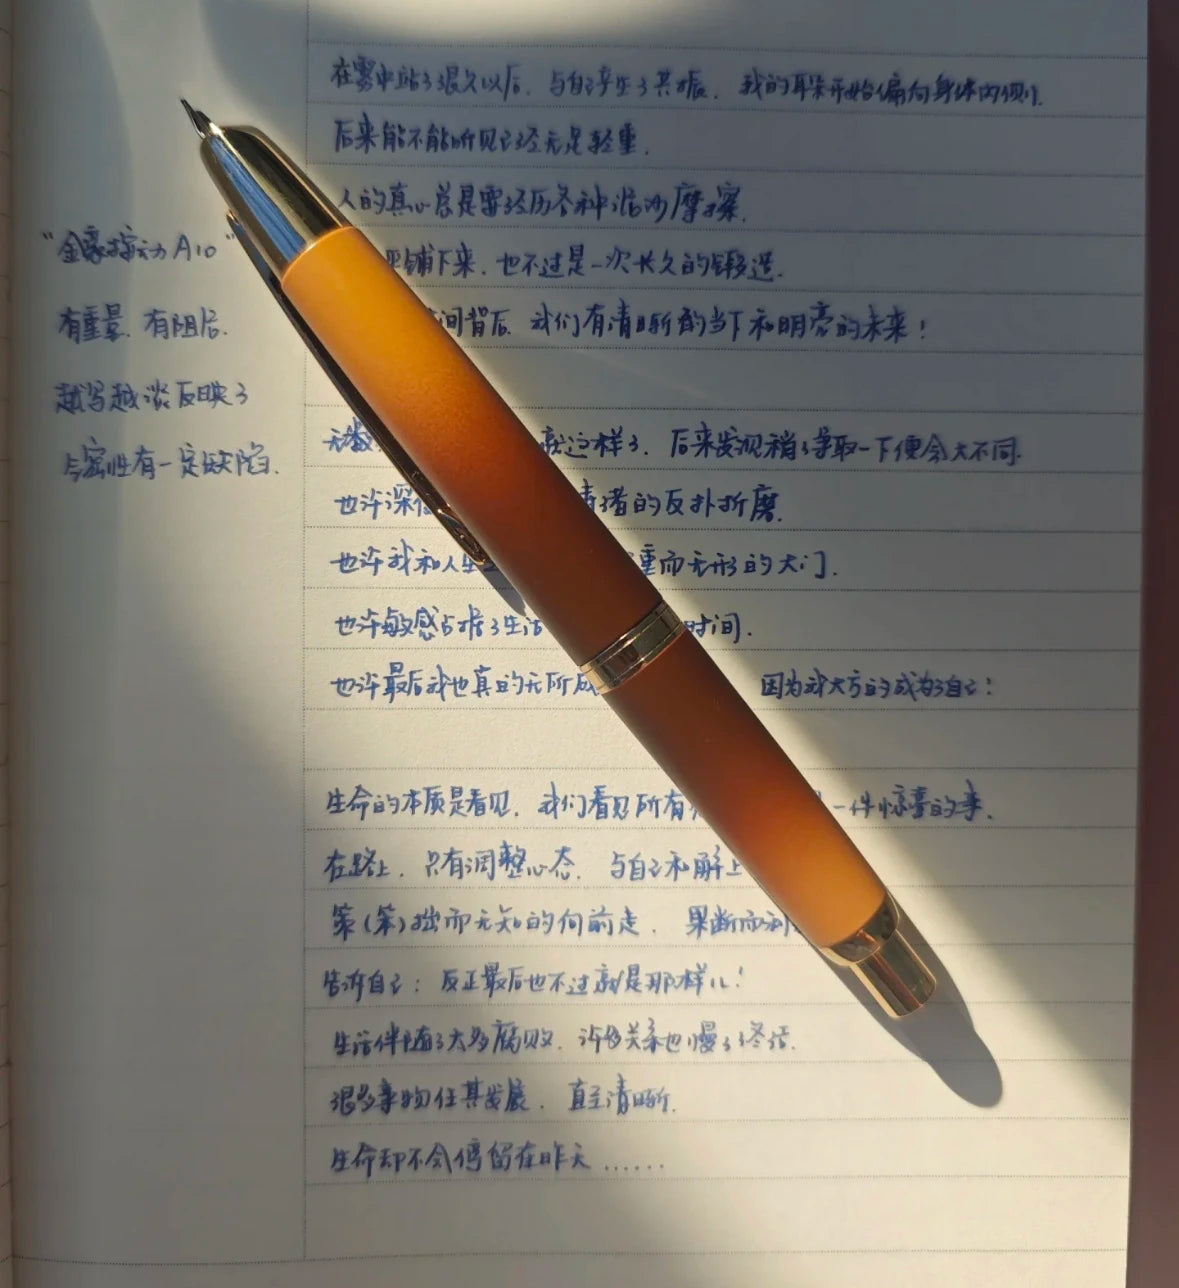 "金豪按动A10"
有重量.有阻尼.
越写越淡反映了
今密性有一定缺陷.
在雾中站了很久以后、与自己产生了共振、我的耳朵开始偏向身体内侧.
后来能不能听见已经无足轻重.
人的真心总是需经历各种泥沙摩擦.
铺下来、也不过是一次长久的锻造.
间背后、我们有清晰的当下和明亮的未来!
无数 就这样了、后来发现稍争取一下便会大不同.
也许深 绪的反扑折磨.
也许我和人生 重而无形的大门.
也许敏感占据了生活 时间.
也许最后我也真的无所成 因为我大方的成为了自己!
生命的本质是看见、我们看见所有 一件惊喜的事.
在路上、只有调整心态、与自己和解上
笨(笨)拙而无知的向前走、果断而利
告诉自己:反正最后也不过就是那样儿!
生活伴随了太多腐败、许多关系也慢了终结.
很多事物任其发展、直至清晰.
生命却不会停留在昨天......